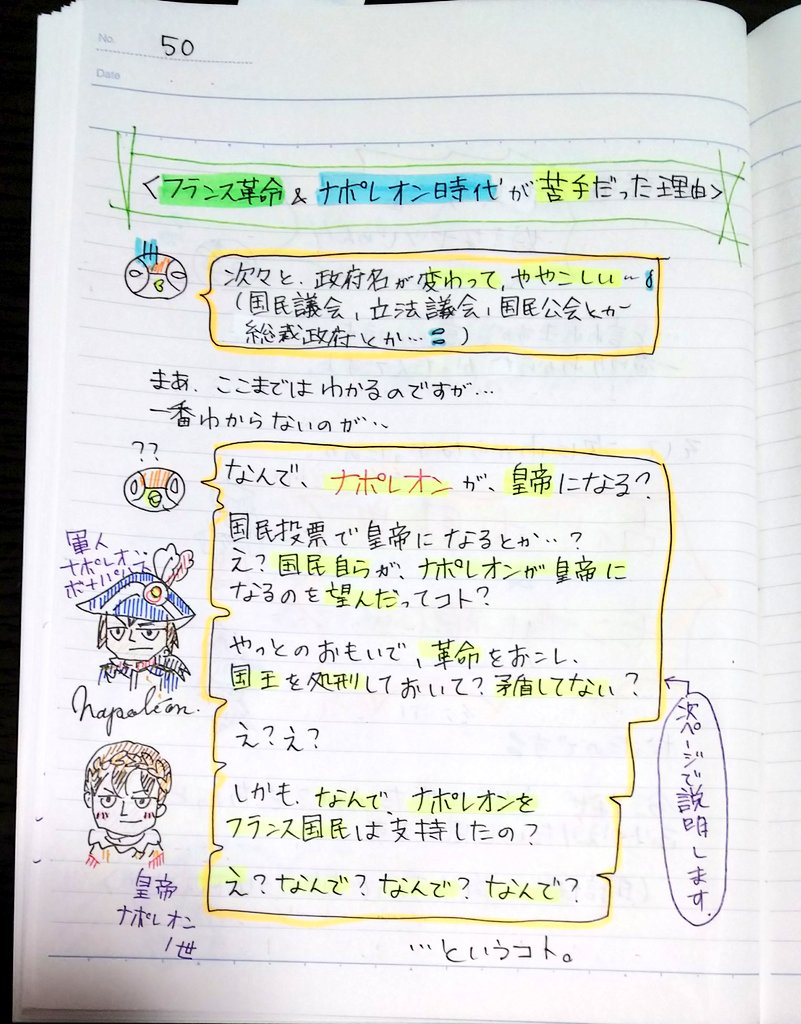 No. 50
Date
<フランス革命&ナポレオン時代が苦手だった理由>
次々と、政府名が変わって、ややこしい…
(国民議会、立法議会、国民公会とか
総裁政府とか…)
まぁ、ここまではわかるのですが…
一番わからないのが…
??
なんで、ナポレオンが、皇帝になる?
国民投票で皇帝になるとか…?
え?国民自らが、ナポレオンが皇帝に
なるのを望んだってコト?
軍人
ナポレオン・
ボナパルト
やっとのおもいで、革命をおこし、
国王を処刑しておいて?矛盾してない?
Napoléon.
え?え?
しかも、なんで、ナポレオンを
フランス国民は支持したの?
え?なんで?なんで?なんで?
次ページで説明します。
皇帝
ナポレオン
1世
…というコト。